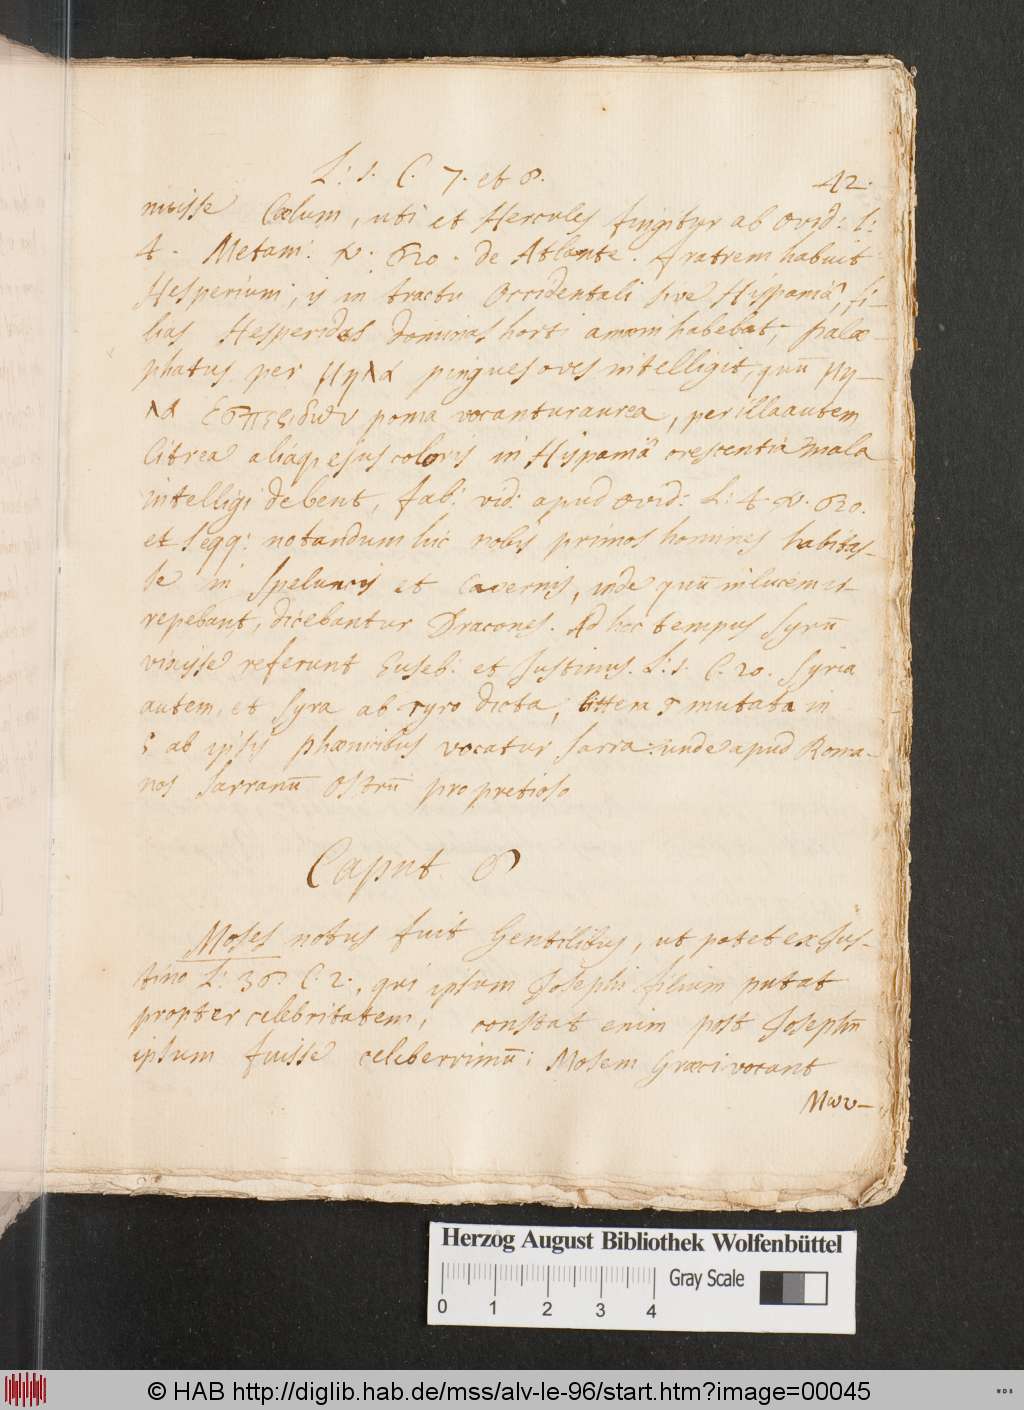 L: 1. C. 7. et 8. 42.
nuisse Cœlum, uti et Hercules fingitur ab Ovid: l:
4. Metam: V. 620. de Atlante. Fratrem habuit
Hesperium, is in tractu Occidentali sive Hispaniâ, fi-
lias Hesperidas dominas horti amœni habebat, Palæ-
phatus per μηλα pingues oves intelligit, quū μη-
λα Εσπεριδων poma vocantur aurea, per illa autem
Citrea aliaq, ejus coloris in Hispaniâ crescentia mala
intelligi debent, fab: vid: apud Ovid: L: 4. V. 620.
et seqq: notandum hic nobis primos homines habitas-
se in speluncis et cavernis, unde quū in lucem ir-
repebant, dicebantur Dracones. Ad hoc tempus Syrū
vixisse referunt Euseb: et Justinus. L: 1. C. 20. Syria
autem, et Syra ab Tyro dicta, littera T mutata in
S ab ipsis Phœnicibus vocatur Sarra: unde apud Roma-
nos Sarranū Ostrū pro pretioso
Caput 8
Moses notus fuit Gentilibus, ut patet ex Jus-
tino L: 36. C. 2:, qui ipsum Josephi filium putat
propter celebritatem, constat enim post Josephū
ipsum fuisse celeberrimū; Mosem Græci vocant
Μωυ-
Herzog August Bibliothek Wolfenbüttel
Gray Scale
0 1 2 3 4
© HAB http://diglib.hab.de/mss/alv-le-96/start.htm?image=00045